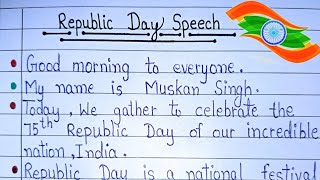 Republic Day Speech
Good morning to everyone.
My name is Muskan Singh.
Today, We gather to celebrate the
75th Republic Day of our incredible
nation, India.
Republic Day is a national festival